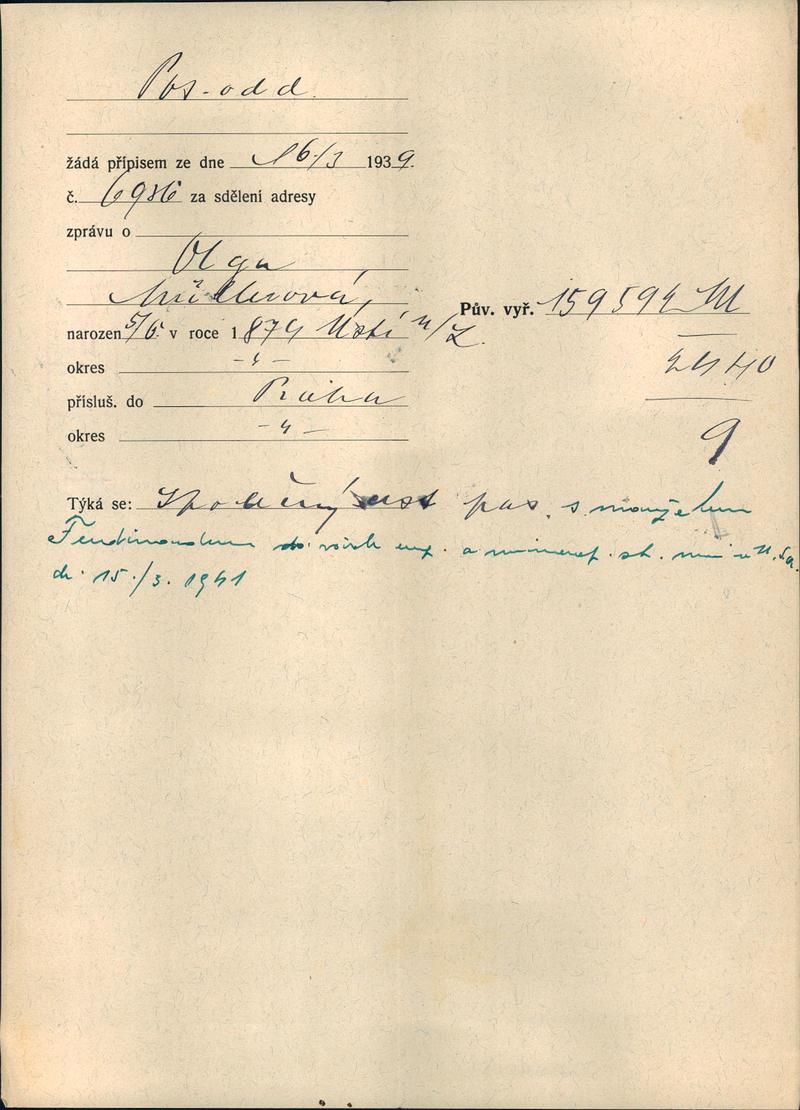 Pas. odd.
žádá přípisem ze dne 16/3 1939.
č. 6986 za sdělení adresy
zprávu o
Olga
Müllerová,
Pův. vyř. 159594 M
narozen 5/6 v roce 1879 Ústí n/L.
okres -"-
2440
přísluš. do Praha
okres -"-
9
Týká se: Společný cest pas. s manželem
Ferdinandem do všech evr. a mimoevr. st.
do 15./3. 1941